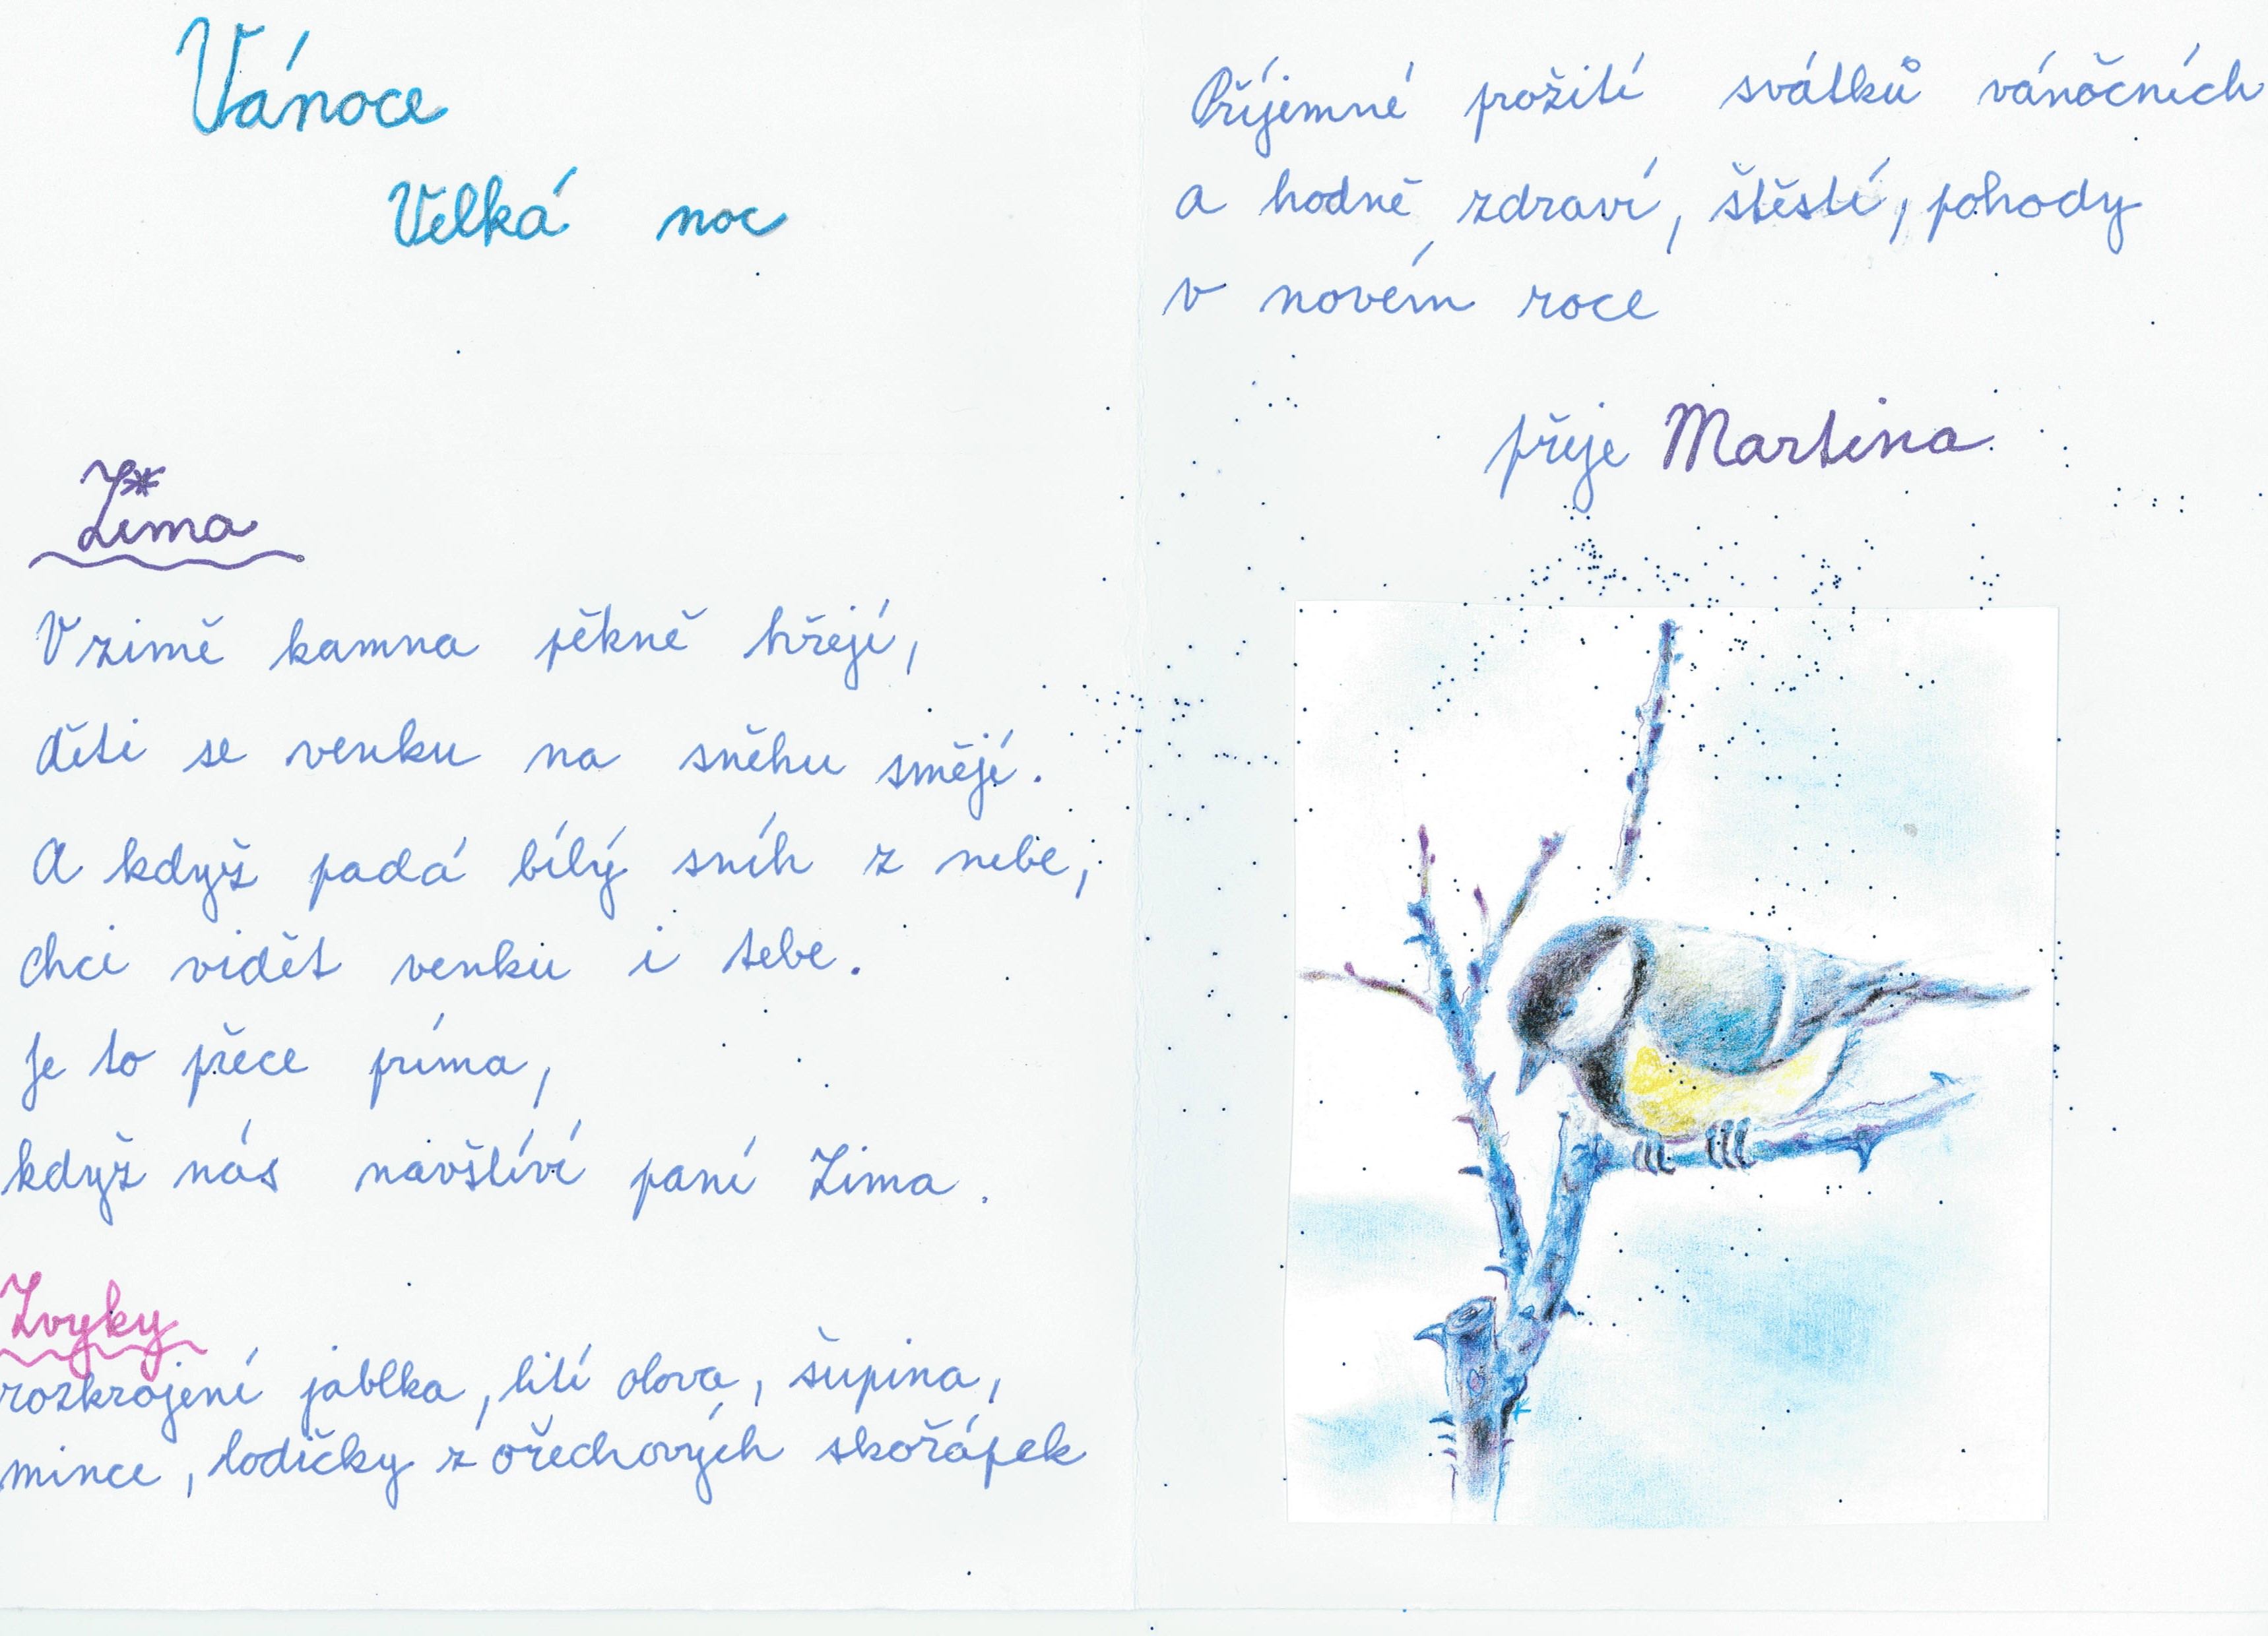 Vánoce
Velká noc
Zima
V zimě kamna pěkně hřejí,
děti se venku na sněhu smějí.
A když padá bílý sníh z nebe,
chci vidět venku i tebe.
Je to přece príma,
když nás navštíví paní Zima.
Zvyky
rozkrojení jablka, lití olova, šupina,
mince, lodičky z ořechových skořápek
Příjemné prožití svátků vánočních
a hodně zdraví, štěstí, pohody
v novém roce
přeje Martina